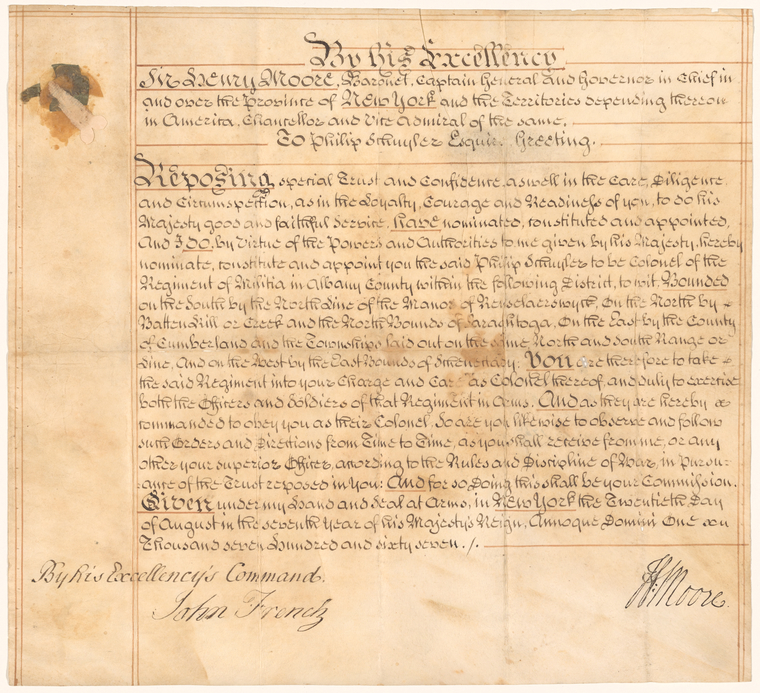 By his Excellency
Sir Henry Moore, Baronet, Captain General and Governor in Chief in
and over the Province of New York and the Territories depending thereon
in America, Chancellor and Vice Admiral of the same.
To Philip Schuyler Esquire. Greeting.
Reposing special Trust and Confidence, as well in the Care, Diligence
and Circumspection, as in the Loyalty, Courage and Readiness of you, to do his
Majesty good and faithful Service, have nominated, constituted and appointed,
And I do, by Virtue of the Powers and Authorities to me given by his Majesty, hereby
nominate, constitute and appoint you the said Philip Schuyler to be Colonel of the
Regiment of Militia in Albany County within the following District, to wit, Bounded
on the South by the North Line of the Manor of Renselaerswyck, On the North by
Batten Kill or Creek and the North Bounds of Saraghtoga, On the East by the County
of Cumberland and the Townships laid out on the same North and South Range or
Line, And on the West by the East Bounds of Schenectady. You are therefore to take
the said Regiment into your Charge and Care as Colonel thereof, and duly to exercise
both the Officers and Soldiers of that Regiment in Arms. And as they are hereby
commanded to obey you as their Colonel, So are you likewise to observe and follow
such Orders and Directions from Time to Time, as you shall receive from me, or any
other your superior Officer, according to the Rules and Discipline of War, in Pursu-
ance of the Trust reposed in you: And for so Doing this shall be your Commission.
Given under my Hand and Seal at Arms, in New York the Twentieth Day
of August in the seventh Year of his Majesty's Reign, Annoque Domini One
Thousand seven Hundred and sixty seven ./.
By his Excellency's Command.
John French
H: Moore.